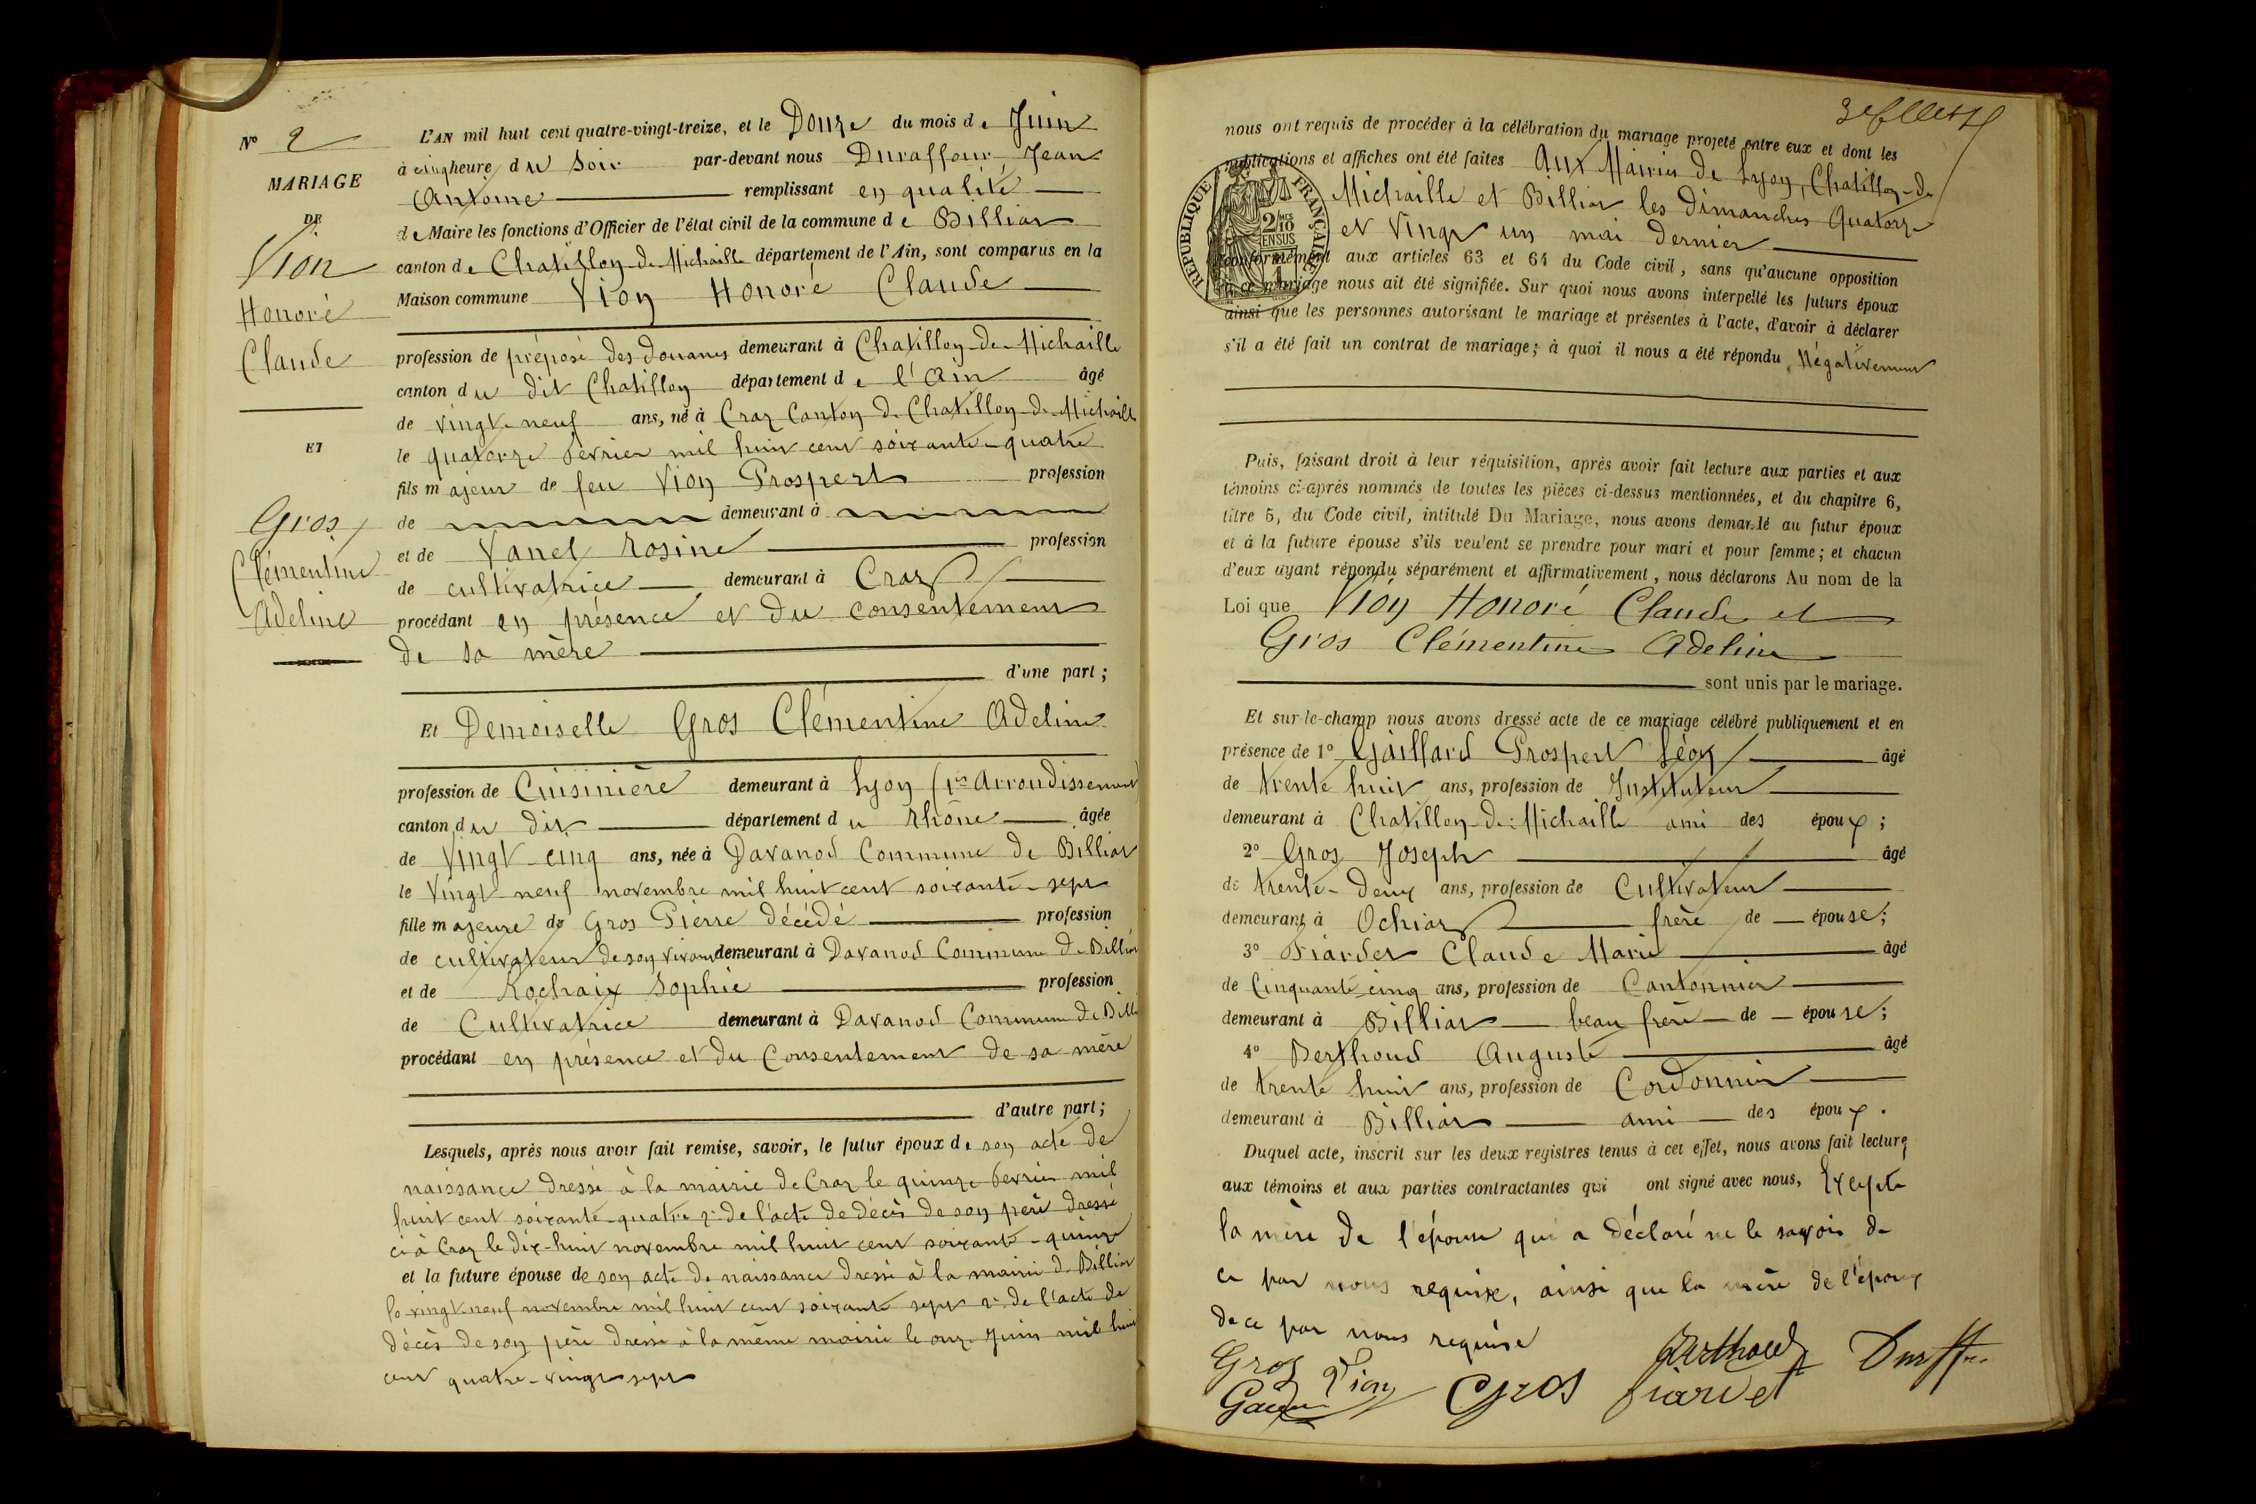 N° 2
MARIAGE
DE
Vion
Honoré
Claude
ET
Gros
Clémentine
Adeline
L'AN mil huit cent quatre-vingt-treize, et le Douze du mois de Juin
à cinq heure du soir par-devant nous Duraffour Jean
Antoine remplissant en qualité
de Maire les fonctions d'Officier de l'état civil de la commune de Billiat
canton de Chatillon-de-Michaille département de l'Ain, sont comparus en la
Maison commune Vion Honoré Claude
profession de préposé des douanes demeurant à Chatillon-de-Michaille
canton du dit Chatillon département de l'Ain âgé
de vingt-neuf ans, né à Craz Canton de Chatillon-de-Michaille
le quatorze février mil huit cent soixante-quatre
fils majeur de feu Vion Prospert profession
de demeurant à
et de Vanel Rosine profession
de cultivatrice demeurant à Craz
procédant en présence et du consentement
de sa mère
d'une part ;
Et Demoiselle Gros Clémentine Adeline
profession de Cuisinière demeurant à Lyon (1er Arrondissement)
canton du dit département du Rhône âgée
de vingt-cinq ans, née à Davanod Commune de Billiat
le vingt-neuf novembre mil huit cent soixante-sept
fille majeure de Gros Pierre décédé profession
de cultivateur de son vivant demeurant à Davanod Commune de Billiat
et de Rochaix Sophie profession
de Cultivatrice demeurant à Davanod Commune de Billi
procédant en présence et du Consentement de sa mère
d'autre part ;
Lesquels, après nous avoir fait remise, savoir, le futur époux de son acte de
naissance dressé à la mairie de Craz le quinze février mil
huit cent soixante-quatre 2° de l'acte de décès de son père dressé
ci à Craz le dix-huit novembre mil huit cent soixante-quinze
et la future épouse de son acte de naissance dressé à la mairie de Billiat
le vingt-neuf novembre mil huit cent soixante sept 2° de l'acte de
décès de son père dressé à la même mairie le onze Juin mil huit
cent quatre-vingt-sept
nous ont requis de procéder à la célébration du mariage projeté entre eux et dont les
publications et affiches ont été faites Aux Mairies de Lyon, Chatillon-de
Michaille et Billiat les dimanches Quatorze
et Vingt un mai dernier
RÉPUBLIQUE FRANÇAISE
2/10 EN SUS
conformément aux articles 63 et 64 du Code civil, sans qu'aucune opposition
à ce mariage nous ait été signifiée. Sur quoi nous avons interpellé les futurs époux
ainsi que les personnes autorisant le mariage et présentes à l'acte, d'avoir à déclarer
s'il a été fait un contrat de mariage ; à quoi il nous a été répondu Négativement
Puis, faisant droit à leur réquisition, après avoir fait lecture aux parties et aux
témoins ci-après nommés de toutes les pièces ci-dessus mentionnées, et du chapitre 6,
titre 5, du Code civil, intitulé Du Mariage, nous avons demandé au futur époux
et à la future épouse s'ils veulent se prendre pour mari et pour femme ; et chacun
d'eux ayant répondu séparément et affirmativement, nous déclarons Au nom de la
Loi que Vion Honoré Claude et
Gros Clémentine Adeline
sont unis par le mariage.
Et sur-le-champ nous avons dressé acte de ce mariage célébré publiquement et en
présence de 1° Gaillard Prospert Léon âgé
de trente huit ans, profession de Instituteur
demeurant à Chatillon-de-Michaille ami des époux ;
2° Gros Joseph âgé
de trente-deux ans, profession de Cultivateur
demeurant à Ochiaz frère de épouse ;
3° Fiardet Claude Marie âgé
de Cinquante cinq ans, profession de Cantonnier
demeurant à Billiat beau frère de épouse ;
4° Berthoud Auguste âgé
de trente huit ans, profession de Cordonnier
demeurant à Billiat ami des époux.
Duquel acte, inscrit sur les deux registres tenus à cet effet, nous avons fait lecture
aux témoins et aux parties contractantes qui ont signé avec nous, Excepté
la mère de l'épouse qui a déclaré ne le savoir de
ce par nous requise, ainsi que la mère de l'époux
de ce par nous requise
Gros Vion Gros Berthoud fiardet